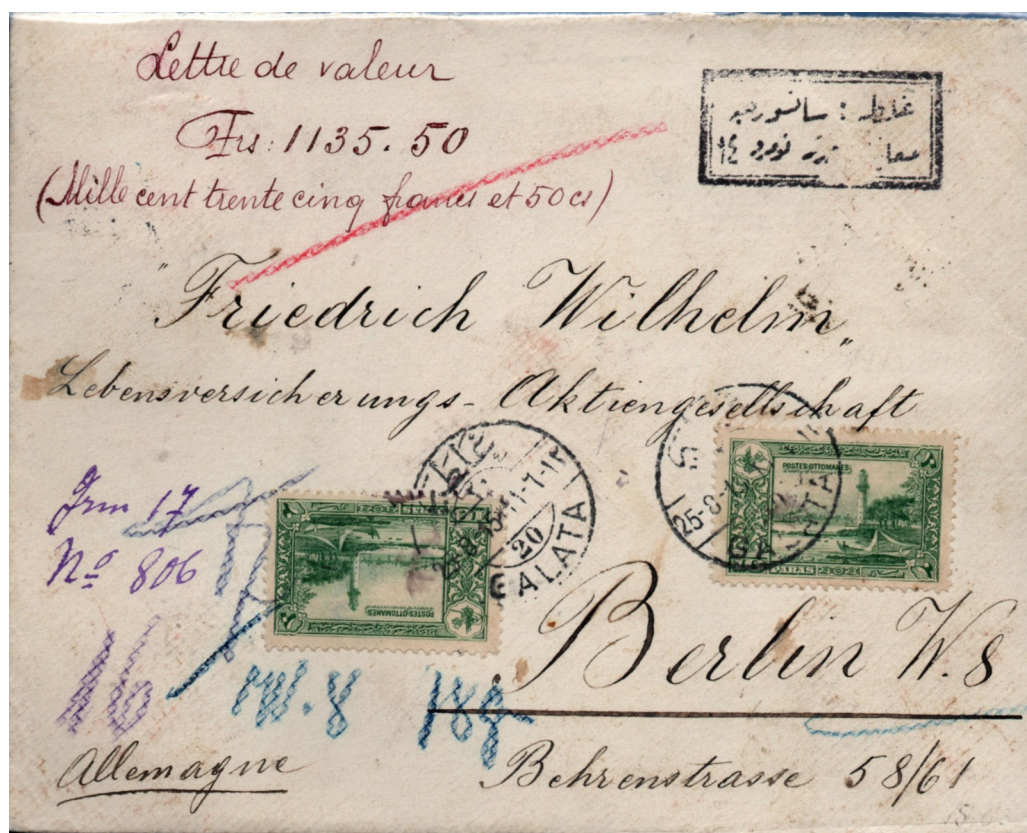 Lettre de valeur
Frs: 1135.50
(Mille cent trente cinq francs et 50 cs)
غلطه : سانسور
نومرو ١٤
"Friedrich Wilhelm"
Lebensversicherungs-Aktiengesellschaft
Grm 17
No 806
25-8-15·11-7-1
20
GALATA
POSTES-OTTOMANES
25-8-1
GALATA
POSTES-OTTOMANES
PARAS 20
Berlin W. 8
16
W. 8
189
Allemagne
Behrenstrasse 58/61